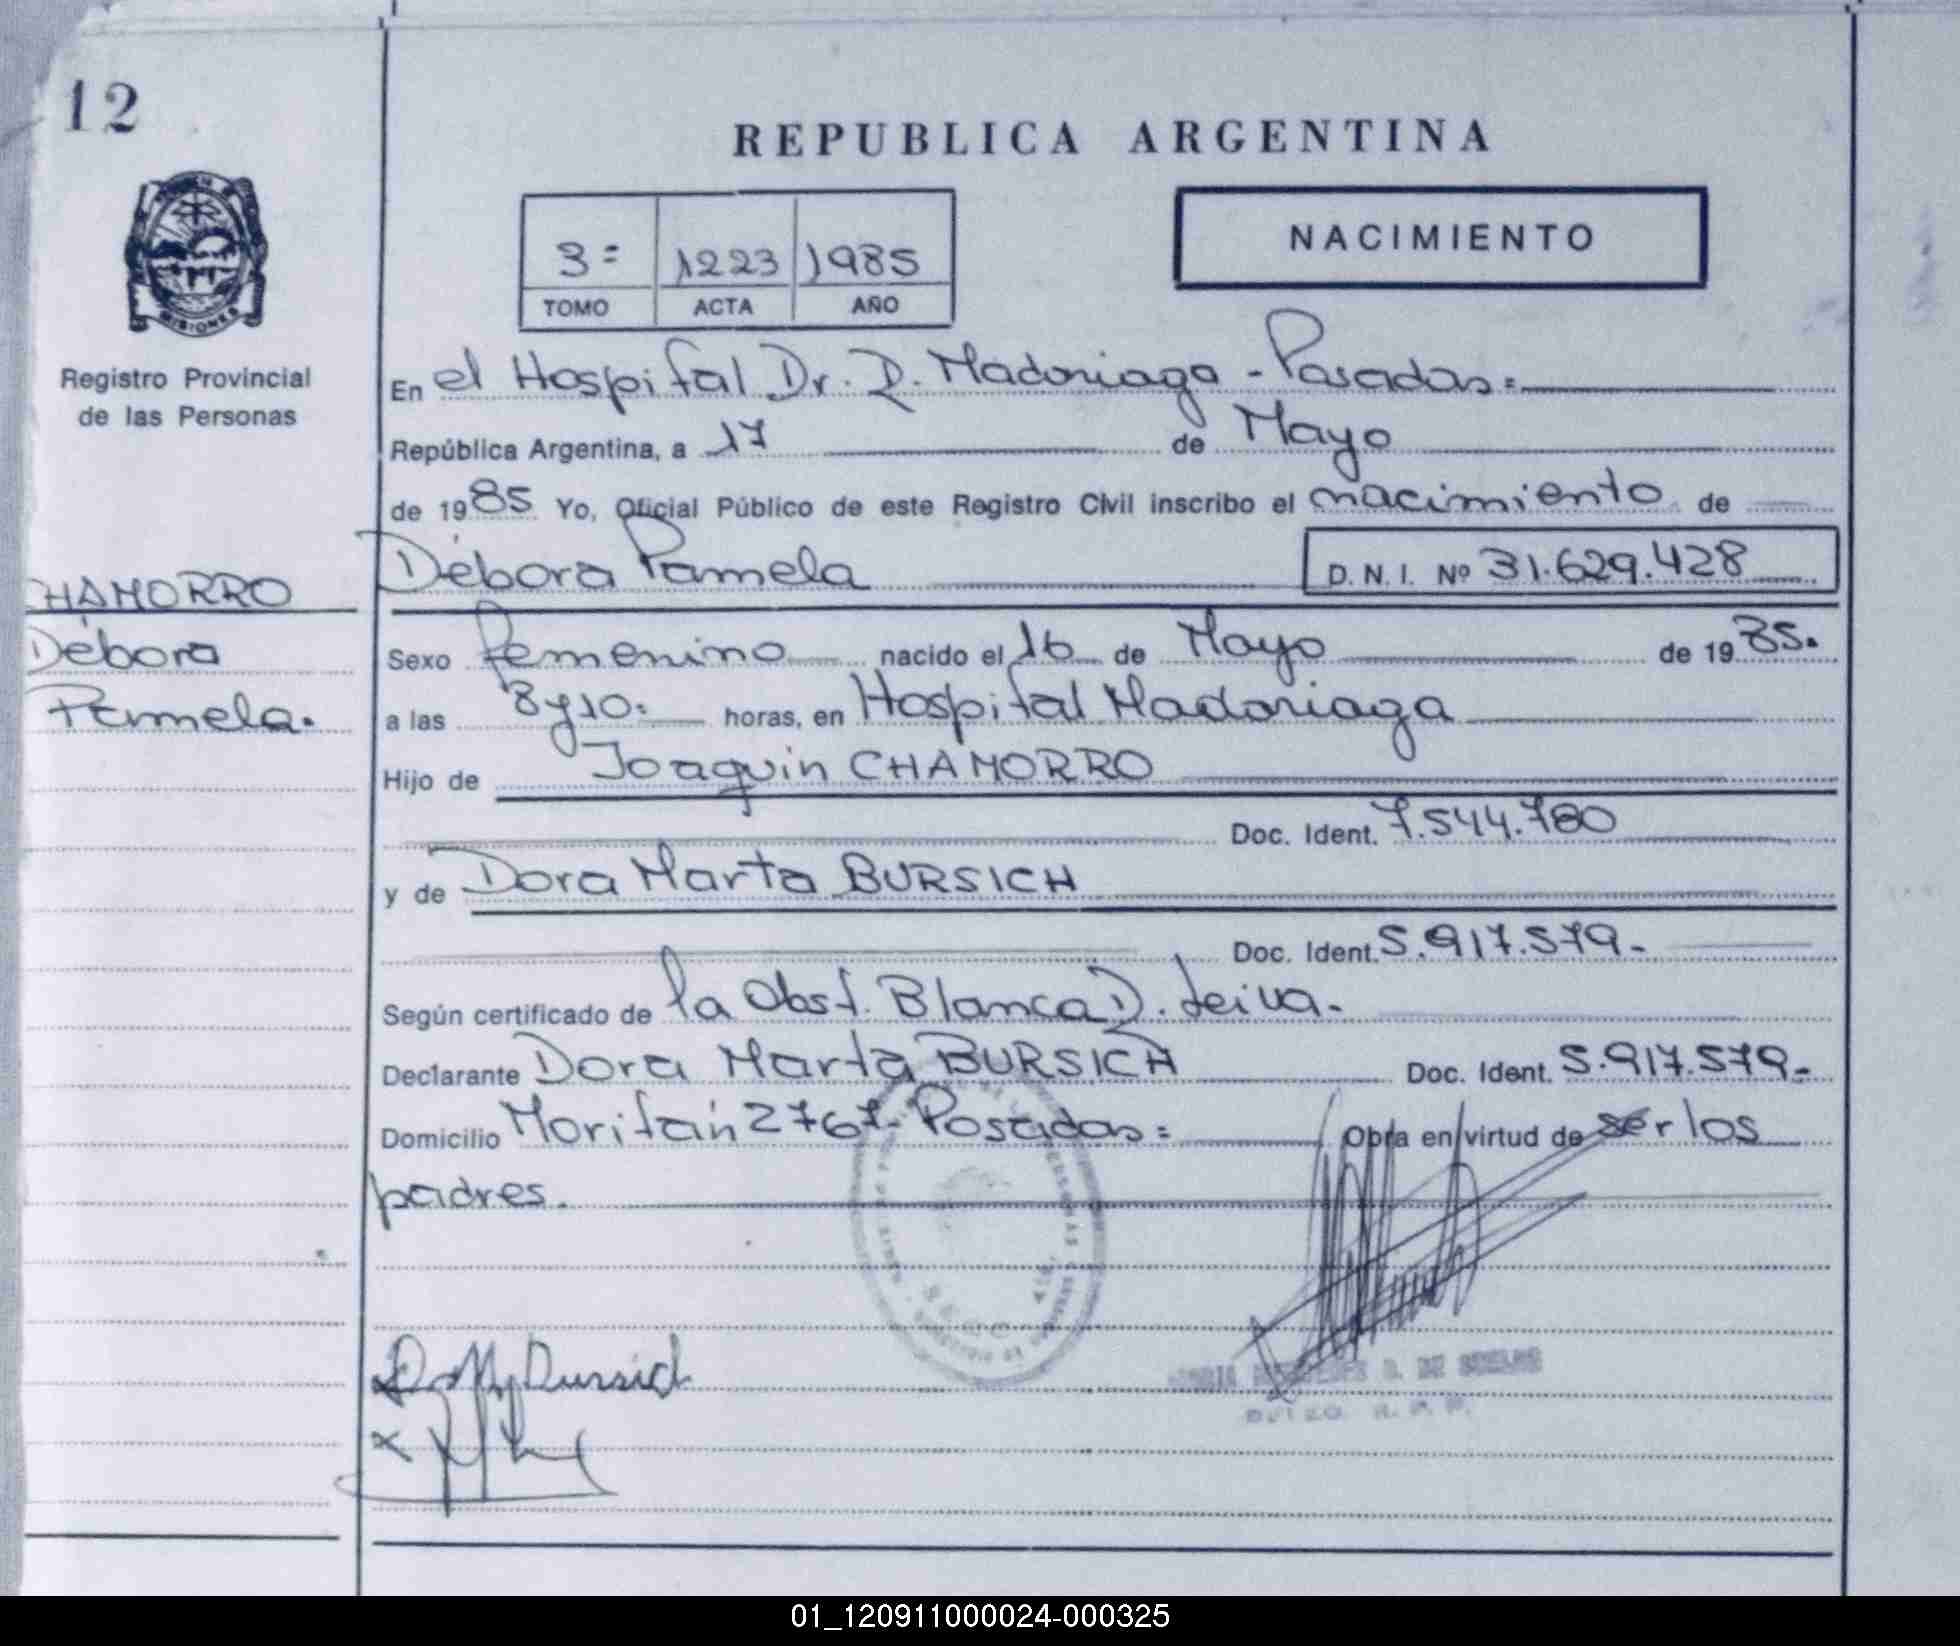 12
REPUBLICA ARGENTINA
MISIONES
Registro Provincial
de las Personas
3= 1223 1985
TOMO ACTA AÑO
NACIMIENTO
En el Hospital Dr. R. Madariaga - Posadas=
República Argentina, a 17 de Mayo
de 1985 Yo, Oficial Público de este Registro Civil inscribo el nacimiento de
Débora Pamela D. N. I. Nº 31.629.428
CHAMORRO
Débora
Pamela.
Sexo femenino nacido el 16 de Mayo de 1985.
a las 8y10= horas, en Hospital Madariaga
Hijo de Joaquin CHAMORRO
Doc. Ident. 7.544.780
y de Dora Marta BURSICH
Doc. Ident. 5.917.579-
Según certificado de la Obst. Blanca D. Leiva.
Declarante Dora Marta BURSICH Doc. Ident. 5.917.579-
Domicilio Moritán 2767- Posadas= Obra en virtud de ser los
padres.
Bursich
x
01_120911000024-000325